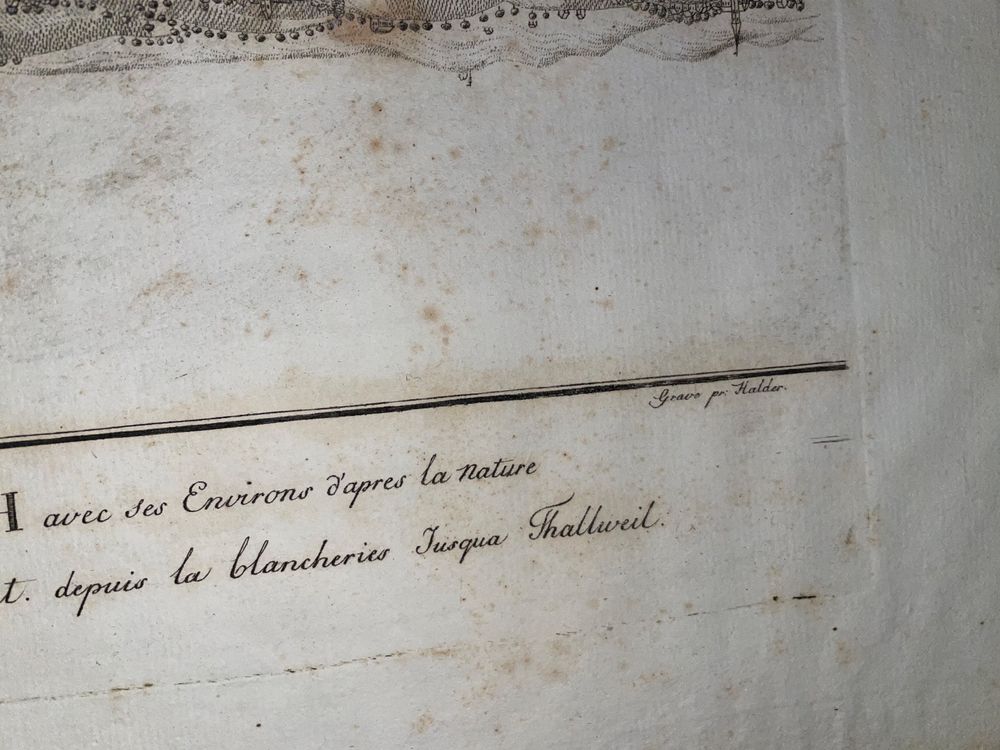 Grave pr: Halder.
H avec ses Environs d'apres la nature
t. depuis la blancheries Jusqua Thallweil.